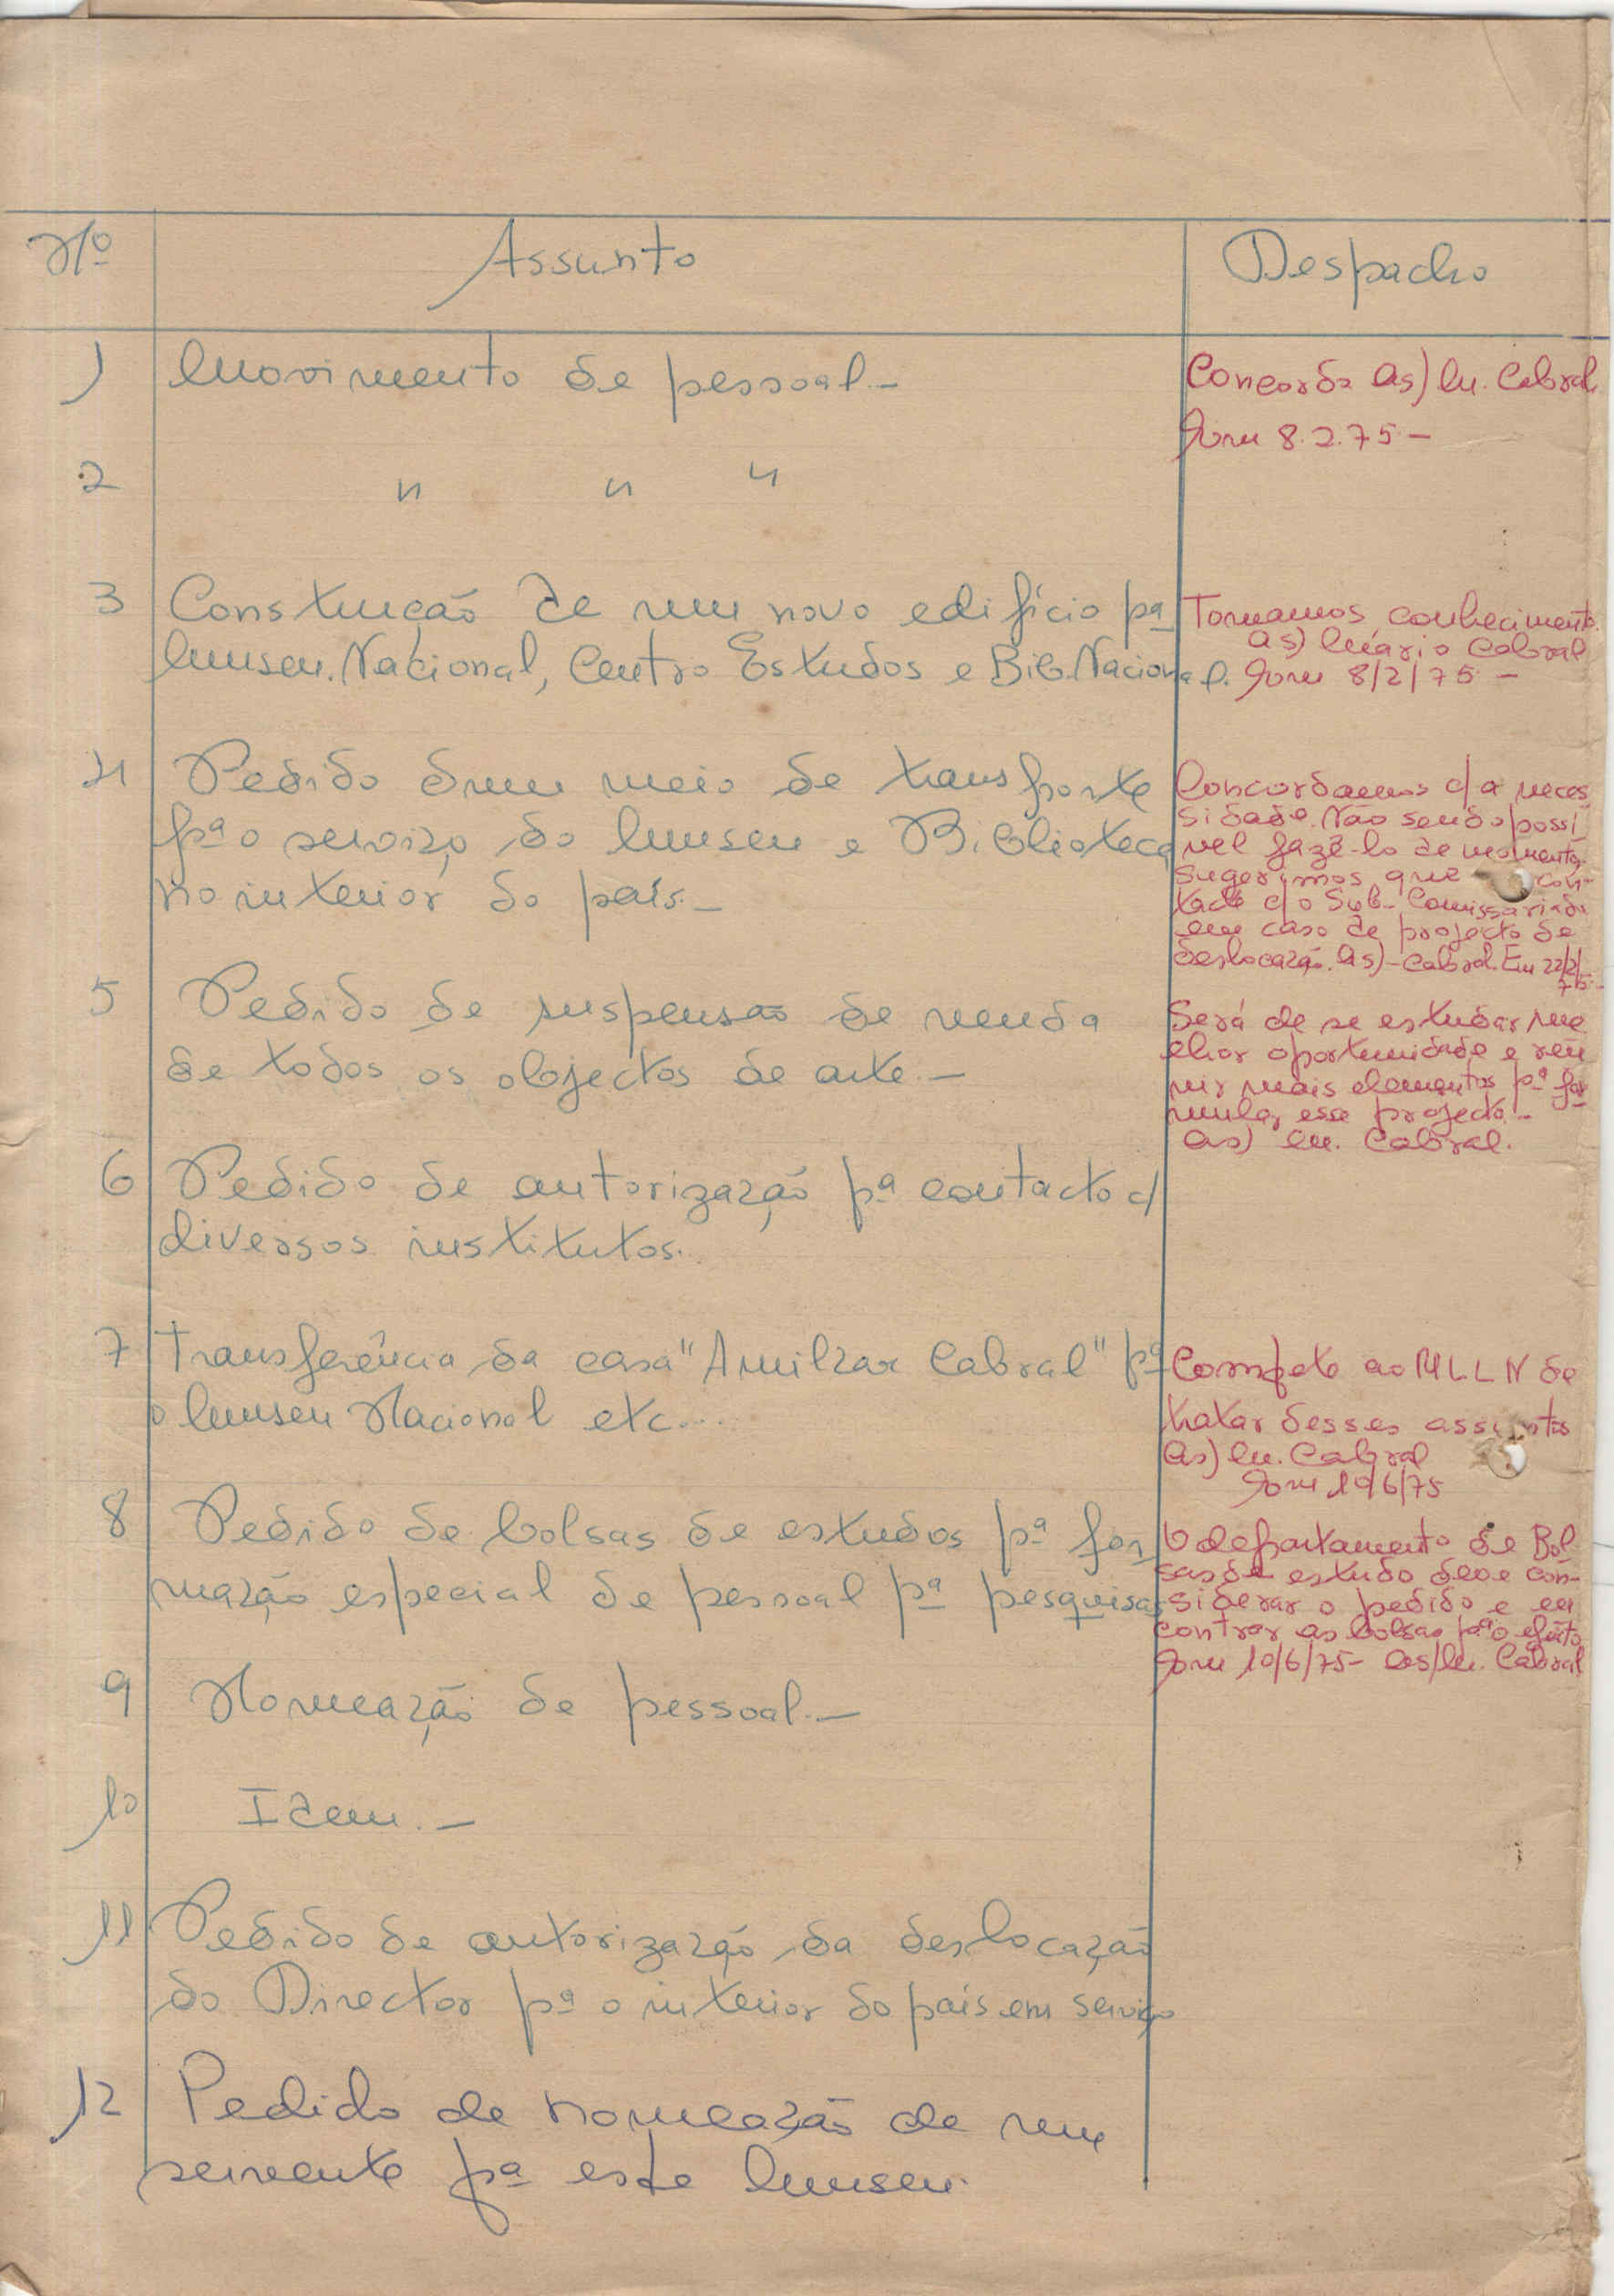 Nº Assunto Despacho
1 Movimento de pessoal.-
Concordo as) M. Cabral
Em 8.2.75.-
2 " " "
3 Construção de um novo edifício pª
Museu Nacional, Centro Estudos e Bib. Nacional.
Tomamos conhecimento
as) Mário Cabral
Em 8/2/75.-
4 Pedido dum meio de transporte
pª o serviço do Museu e Biblioteca
no interior do país.-
Concordamos c/ a neces
sidade. Não sendo possí
vel fazê-lo de momento,
sugerimos que con-
tacte c/o Sub-Comissariado
em caso de projecto de
deslocação. as)-Cabral. Em 22/2/
75.-
5 Pedido de suspensão de venda
de todos os objectos de arte.-
Será de se estudar me
lhor oportunidade e reu
nir mais elementos pª for
mular esse projecto.-
as) M. Cabral.
6 Pedido de autorização pª contacto c/
diversos institutos.
7 Transferência da casa "Amilcar Cabral" pª
o Museu Nacional etc...
Compete ao MLLN de
tratar desses assuntos
as) M. Cabral
Em 10/6/75
8 Pedido de bolsas de estudos pª for
mação especial de pessoal pª pesquisas
O departamento de Bol
sas de estudo deve con-
siderar o pedido e en
contrar as bolsas pª o efeito
Em 10/6/75- as/M. Cabral
9 Nomeação de pessoal.-
10 Idem.-
11 Pedido de autorização da deslocação
do Director pª o interior do país em serviço
12 Pedido de nomeação de um
servente pª este Museu.